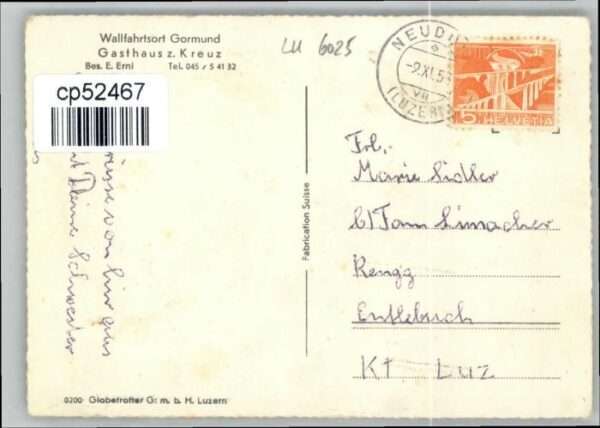 Wallfahrtsort Gormund
Gasthaus z. Kreuz
Bes. E. Erni Tel. 045 / 5 41 32
LU 6025
cp52467
NEUDO
-9.XI.5
VII
(LUZERN
5 HELVETIA
Frl.
Marie Sidler
b/Fam Limacher
Rengg
Entlebuch
Kt Luz
Fabrication Suisse
von hir aus
Deine Schwester
0200 Globetrotter G. m. b. H. Luzern